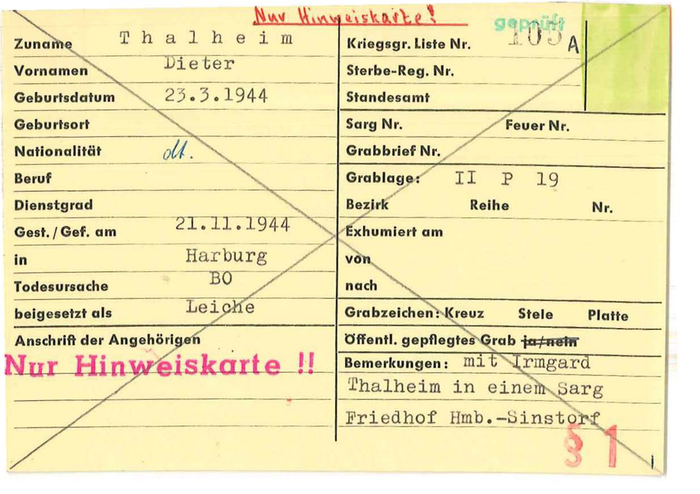 Nur Hinweiskarte!
geprüft
Zuname Thalheim
Vornamen Dieter
Geburtsdatum 23.3.1944
Geburtsort
Nationalität dt.
Beruf
Dienstgrad
Gest./Gef. am 21.11.1944
in Harburg
Todesursache BO
beigesetzt als Leiche
Anschrift der Angehörigen
Nur Hinweiskarte !!
Kriegsgr. Liste Nr. 105 A
Sterbe-Reg. Nr.
Standesamt
Sarg Nr. Feuer Nr.
Grabbrief Nr.
Grablage: II P 19
Bezirk Reihe Nr.
Exhumiert am
von
nach
Grabzeichen: Kreuz Stele Platte
Öffentl. gepflegtes Grab ja/nein
Bemerkungen: mit Irmgard
Thalheim in einem Sarg
Friedhof Hmb.-Sinstorf
§ 1